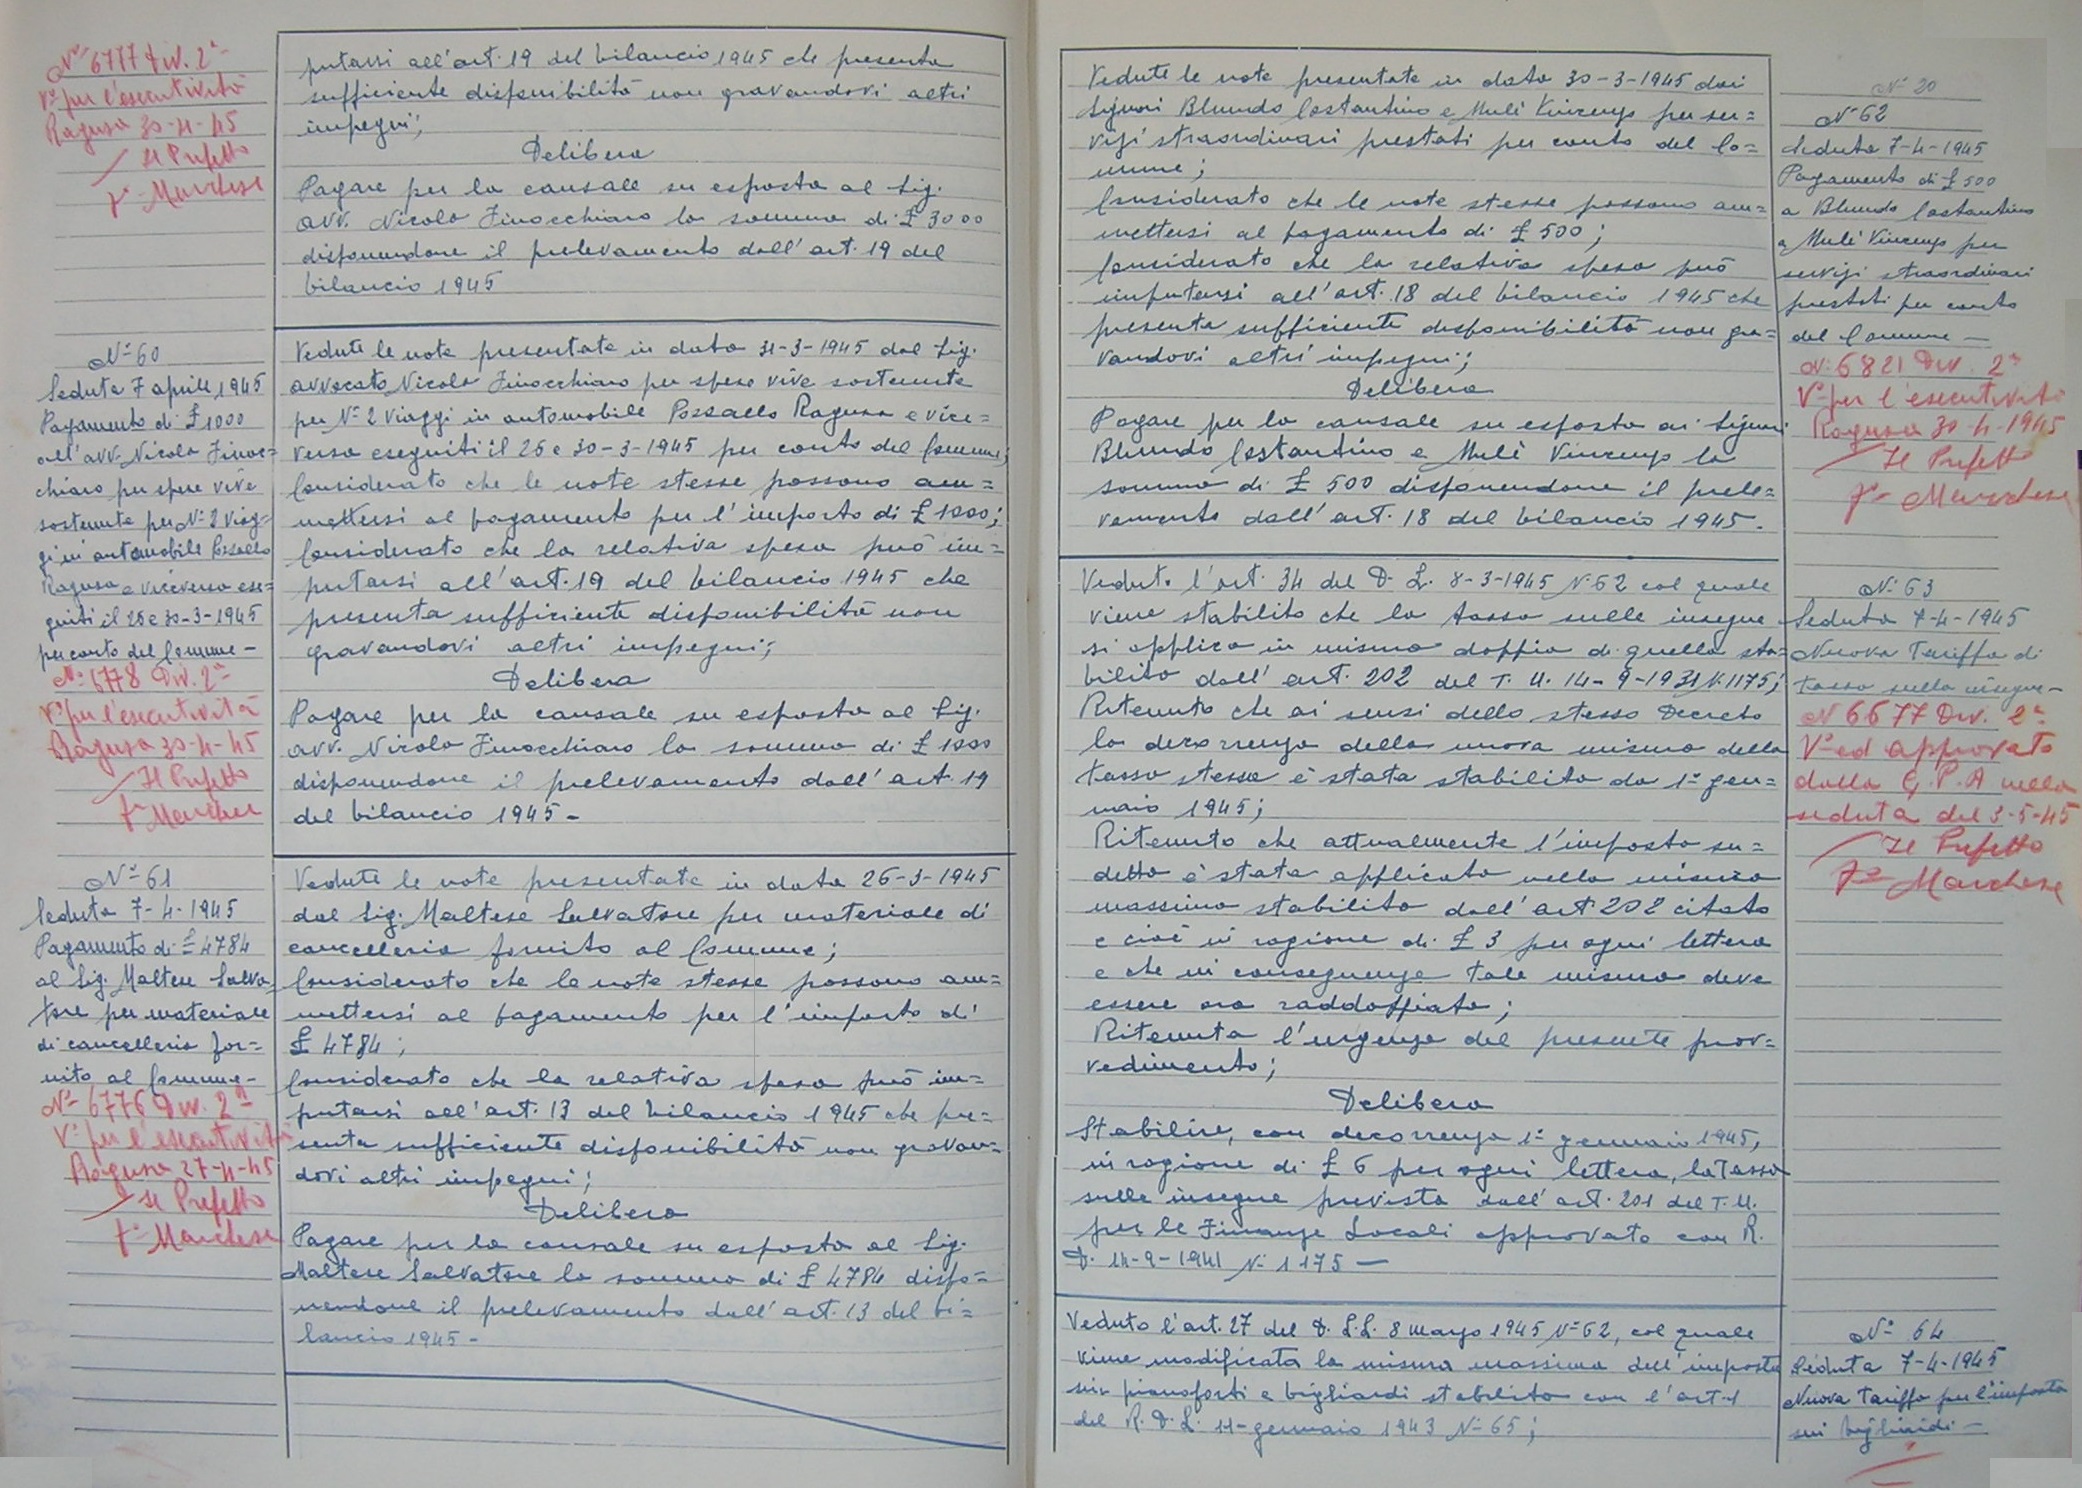 N° 6777 Div. 2ª
V° per l'esecutività
Ragusa 30-4-45
Il Prefetto
F° Marchese
putarsi all'art. 19 del bilancio 1945 che presenta
sufficiente disponibilità non gravandovi altri
impegni;
Delibera
Pagare per la causale su esposta al Sig.
avv. Nicola Finocchiaro la somma di £ 3000
disponendone il prelevamento dall'art. 19 del
bilancio 1945
N° 60
Seduta 7 aprile 1945
Pagamento di £ 1000
all'avv. Nicola Finoc=
chiaro per spese vive
sostenute per N° 2 viag=
gi in automobile Pozzallo
Ragusa e viceversa ese=
guiti il 26 e 30-3-1945
per conto del Comune -
N° 6778 Div. 2ª
V° per l'esecutività
Ragusa 30-4-45
Il Prefetto
F° Marchese
Vedute le note presentate in data 31-3-1945 dal Sig.
avvocato Nicola Finocchiaro per spese vive sostenute
per N° 2 viaggi in automobile Pozzallo Ragusa e vice=
versa eseguiti il 26 e 30-3-1945 per conto del Comune;
Considerato che le note stesse possono am=
mettersi al pagamento per l'importo di £ 1000;
Considerato che la relativa spesa può im=
putarsi all'art. 19 del bilancio 1945 che
presenta sufficiente disponibilità non
gravandovi altri impegni;
Delibera
Pagare per la causale su esposta al Sig.
avv. Nicola Finocchiaro la somma di £ 1000
disponendone il prelevamento dall'art. 19
del bilancio 1945 -
N° 61
Seduta 7-4-1945
Pagamento di £ 4784
al Sig. Maltese Salva=
tore per materiale
di cancelleria for=
nito al Comune -
N° 6776 Div. 2ª
V° per l'esecutività
Ragusa 27-4-45
Il Prefetto
F° Marchese
Vedute le note presentate in data 26-3-1945
dal Sig. Maltese Salvatore per materiale di
cancelleria fornito al Comune;
Considerato che le note stesse possono am=
mettersi al pagamento per l'importo di
£ 4784;
Considerato che la relativa spesa può im=
putarsi all'art. 13 del bilancio 1945 che pre=
senta sufficiente disponibilità non gravan=
dovi altri impegni;
Delibera
Pagare per la causale su esposta al Sig.
Maltese Salvatore la somma di £ 4784 dispo=
nendone il prelevamento dall'art. 13 del bi=
lancio 1945 -
Vedute le note presentate in data 30-3-1945 dai
Signori Blundo Costantino e Mulè Vincenzo per ser=
vizi straordinari prestati per conto del Co=
mune;
Considerato che le note stesse possono am=
mettersi al pagamento di £ 500;
Considerato che la relativa spesa può
imputarsi all'art. 18 del bilancio 1945 che
presenta sufficiente disponibilità non gra=
vandovi altri impegni;
Delibera
Pagare per la causale su esposta ai Signori
Blundo Costantino e Mulè Vincenzo la
somma di £ 500 disponendone il prele=
vamento dall'art. 18 del bilancio 1945.
N° 20
N° 62
Seduta 7-4-1945
Pagamento di £ 500
a Blundo Costantino
e Mulè Vincenzo per
servizi straordinari
prestati per conto
del Comune -
N. 6821 Div. 2ª
V° per l'esecutività
Ragusa 30-4-1945
Il Prefetto
F° Marchese
Veduto l'art. 34 del D. L. 8-3-1945 N. 62 col quale
viene stabilito che la tassa sulle insegne
si applica in misura doppia di quella sta=
bilita dall'art. 202 del T. U. 14-9-1931 N. 1175;
Ritenuto che ai sensi dello stesso Decreto
la decorrenza della nuova misura della
tassa stessa è stata stabilita da 1° gen=
naio 1945;
Ritenuto che attualmente l'imposta su=
detta è stata applicata nella misura
massima stabilita dall'art 202 citato
e cioè in ragione di £ 3 per ogni lettera
e che in conseguenza tale misura deve
essere ora raddoppiata;
Ritenuta l'urgenza del presente prov=
vedimento;
Delibera
Stabilire, con decorrenza 1° gennaio 1945,
in ragione di £ 6 per ogni lettera, la tassa
sulle insegne prevista dall'art. 201 del T. U.
per le Finanze Locali approvato con R.
D. 14-9-1941 N. 1175 -
N° 63
Seduta 7-4-1945
Nuova Tariffa di
tassa sulle insegne -
N 6677 Div. 2ª
V° ed approvato
dalla G. P. A nella
seduta del 3-5-45
Il Prefetto
F° Marchese
Veduto l'art. 27 del D. L. L. 8 marzo 1945 N° 62, col quale
viene modificata la misura massima dell'imposta
sui pianoforti e bigliardi stabilita con l'art. 1
del R. D. L. 11-gennaio 1943 N° 65;
N° 64
Seduta 7-4-1945
Nuova Tariffa per l'imposta
sui bigliardi -